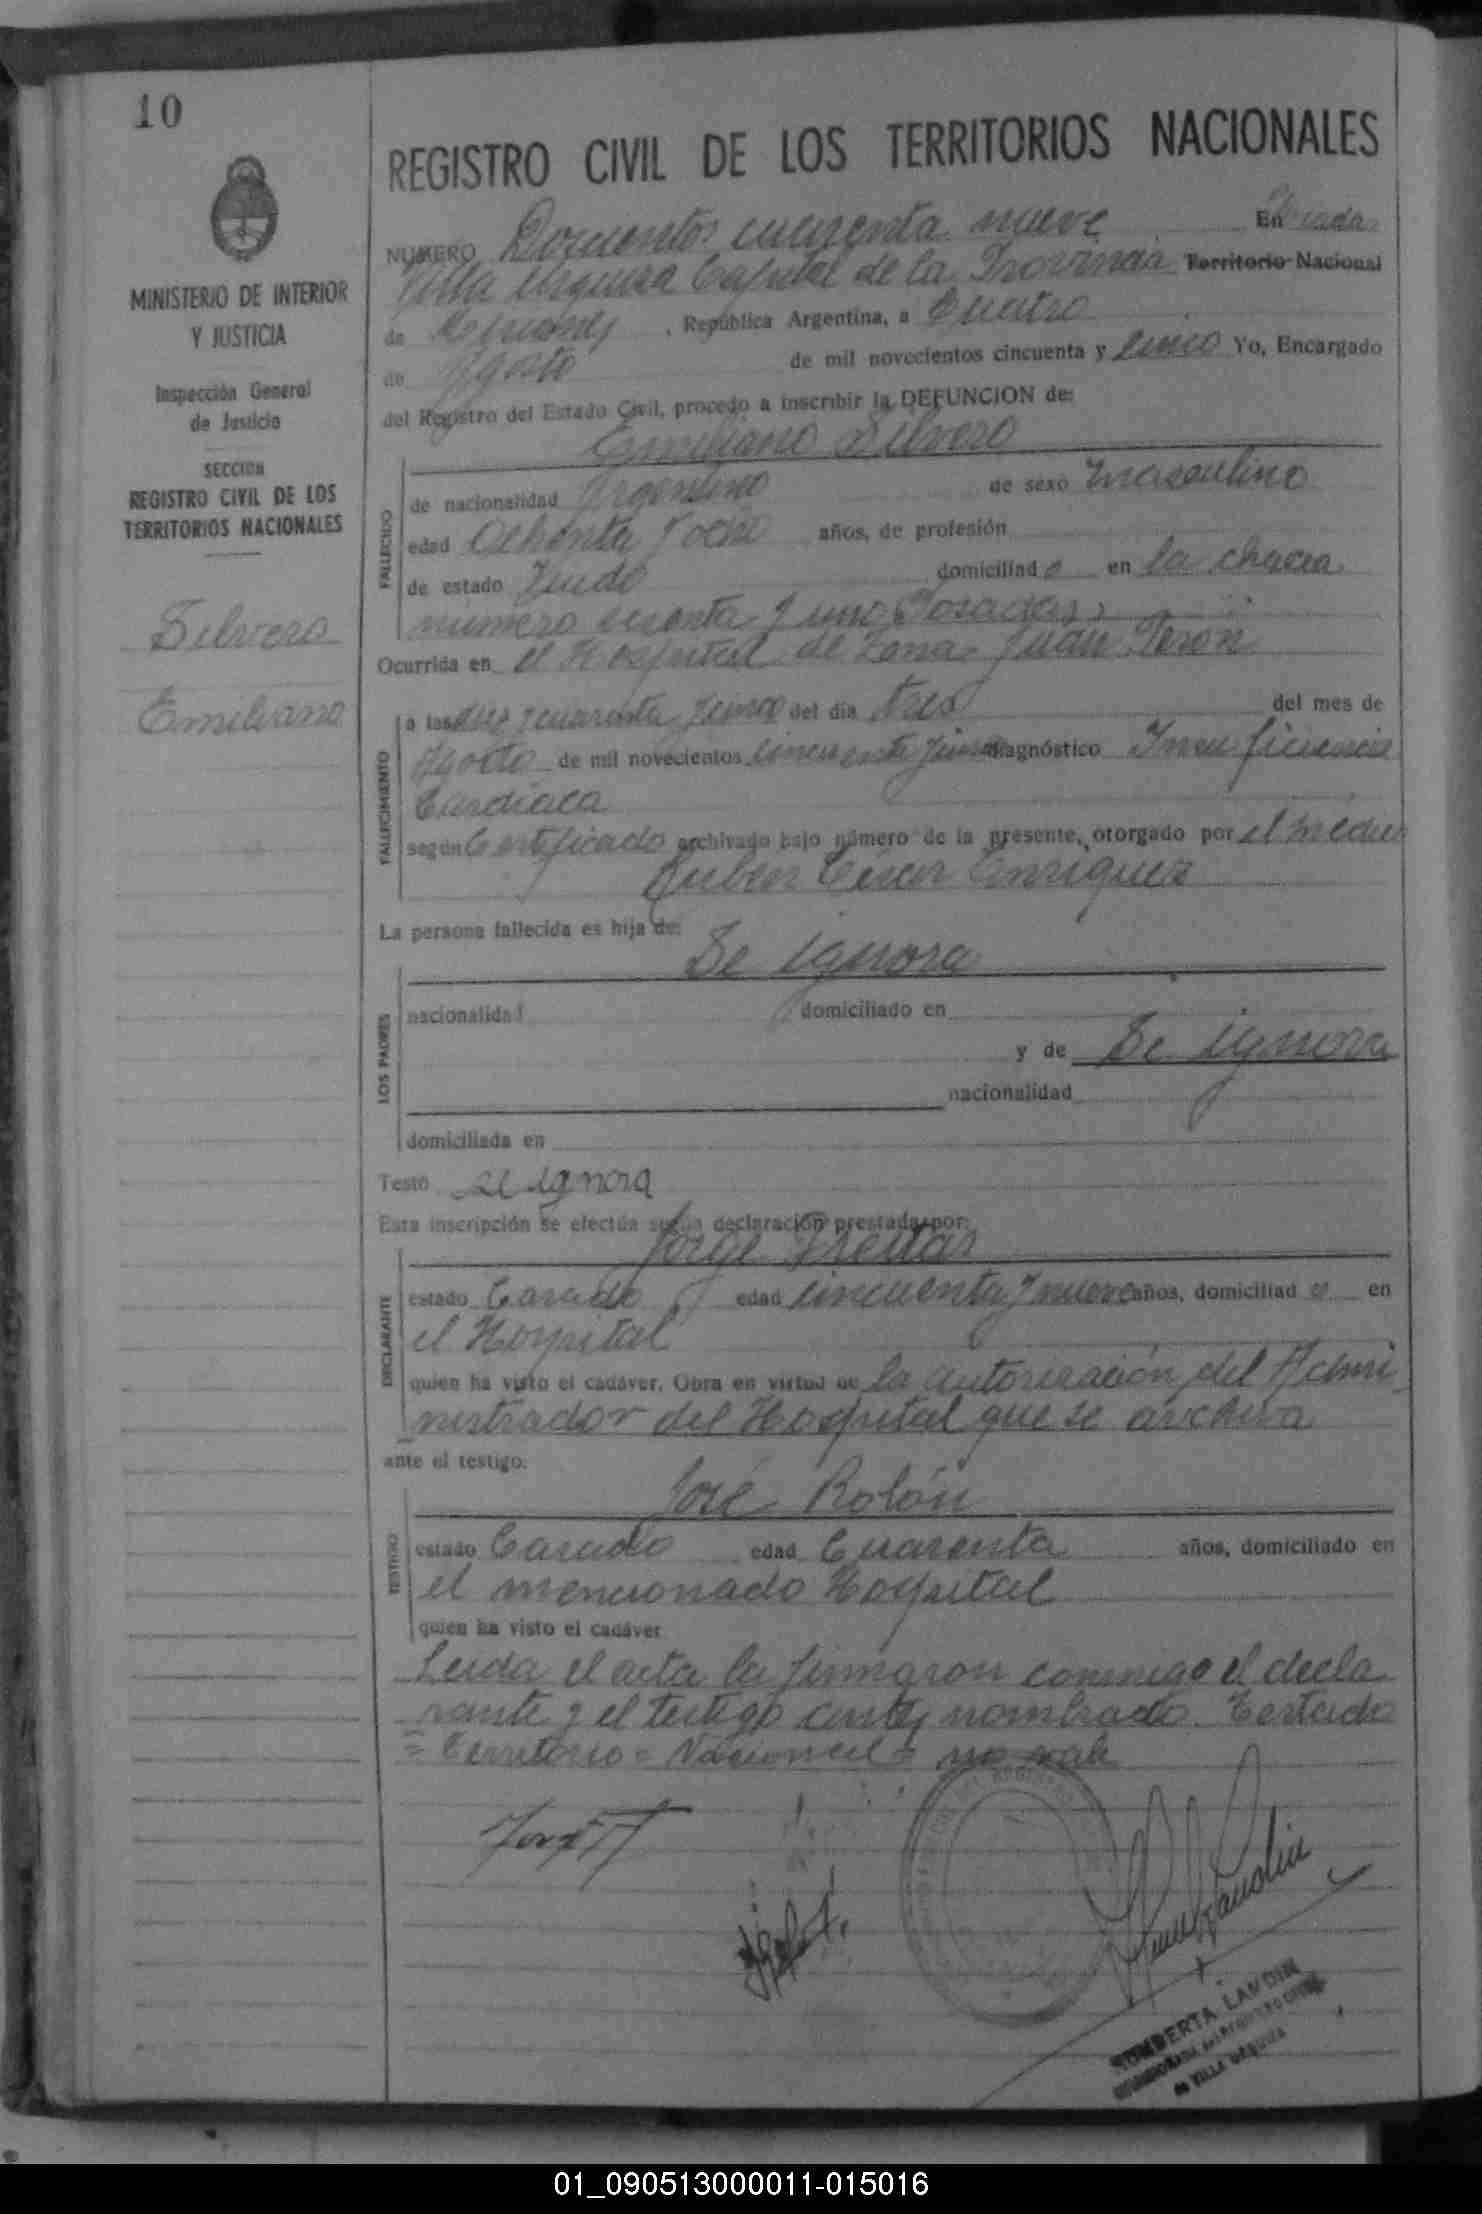 10
MINISTERIO DE INTERIOR
Y JUSTICIA
Inspección General
de Justicia
SECCION
REGISTRO CIVIL DE LOS
TERRITORIOS NACIONALES
Silvero
Emiliano
REGISTRO CIVIL DE LOS TERRITORIOS NACIONALES
NUMERO Doscientos cuarenta nueve En Posadas
Villa Urquiza Capital de la Provincia Territorio Nacional
de Misiones, República Argentina, a Cuatro
de Agosto de mil novecientos cincuenta y cinco Yo, Encargado
del Registro del Estado Civil, procedo a inscribir la DEFUNCION de:
Emiliano Silvero
FALLECIDO
de nacionalidad Argentino de sexo masculino
edad Ochenta y ocho años, de profesión
de estado Viudo domiciliado en la chacra
número y uno Posadas
Ocurrida en el Hospital de Zona Juan Perón
FALLECIMIENTO
a las cuarenta y cinco del día tres del mes de
Agosto de mil novecientos cincuenta y cinco diagnóstico Insuficiencia
Cardiaca
según Certificado archivado bajo número de la presente, otorgado por el médico
Rubén César Enriquez
La persona fallecida es hija de:
Se ignora
LOS PADRES
nacionalidad domiciliado en
y de Se ignora
nacionalidad
domiciliada en
Testó se ignora
Esta inscripción se efectúa según declaración prestada por:
Jorge Freitas
DECLARANTE
estado Casado edad cincuenta y nueve años, domiciliado en
el Hospital
quien ha visto el cadáver. Obra en virtud de la autorización del Admi
nistrador del Hospital que se archiva
ante el testigo:
José Rolón
TESTIGO
estado Casado edad Cuarenta años, domiciliado en
el mencionado Hospital
quien ha visto el cadáver
Leida el acta la firmaron conmigo el decla
rante y el testigo antes nombrado. Testado
= Territorio = Nacional = no vale
HUMBERTA LANDIN
ENCARGADA del REGISTRO CIVIL
de VILLA URQUIZA
01_090513000011-015016